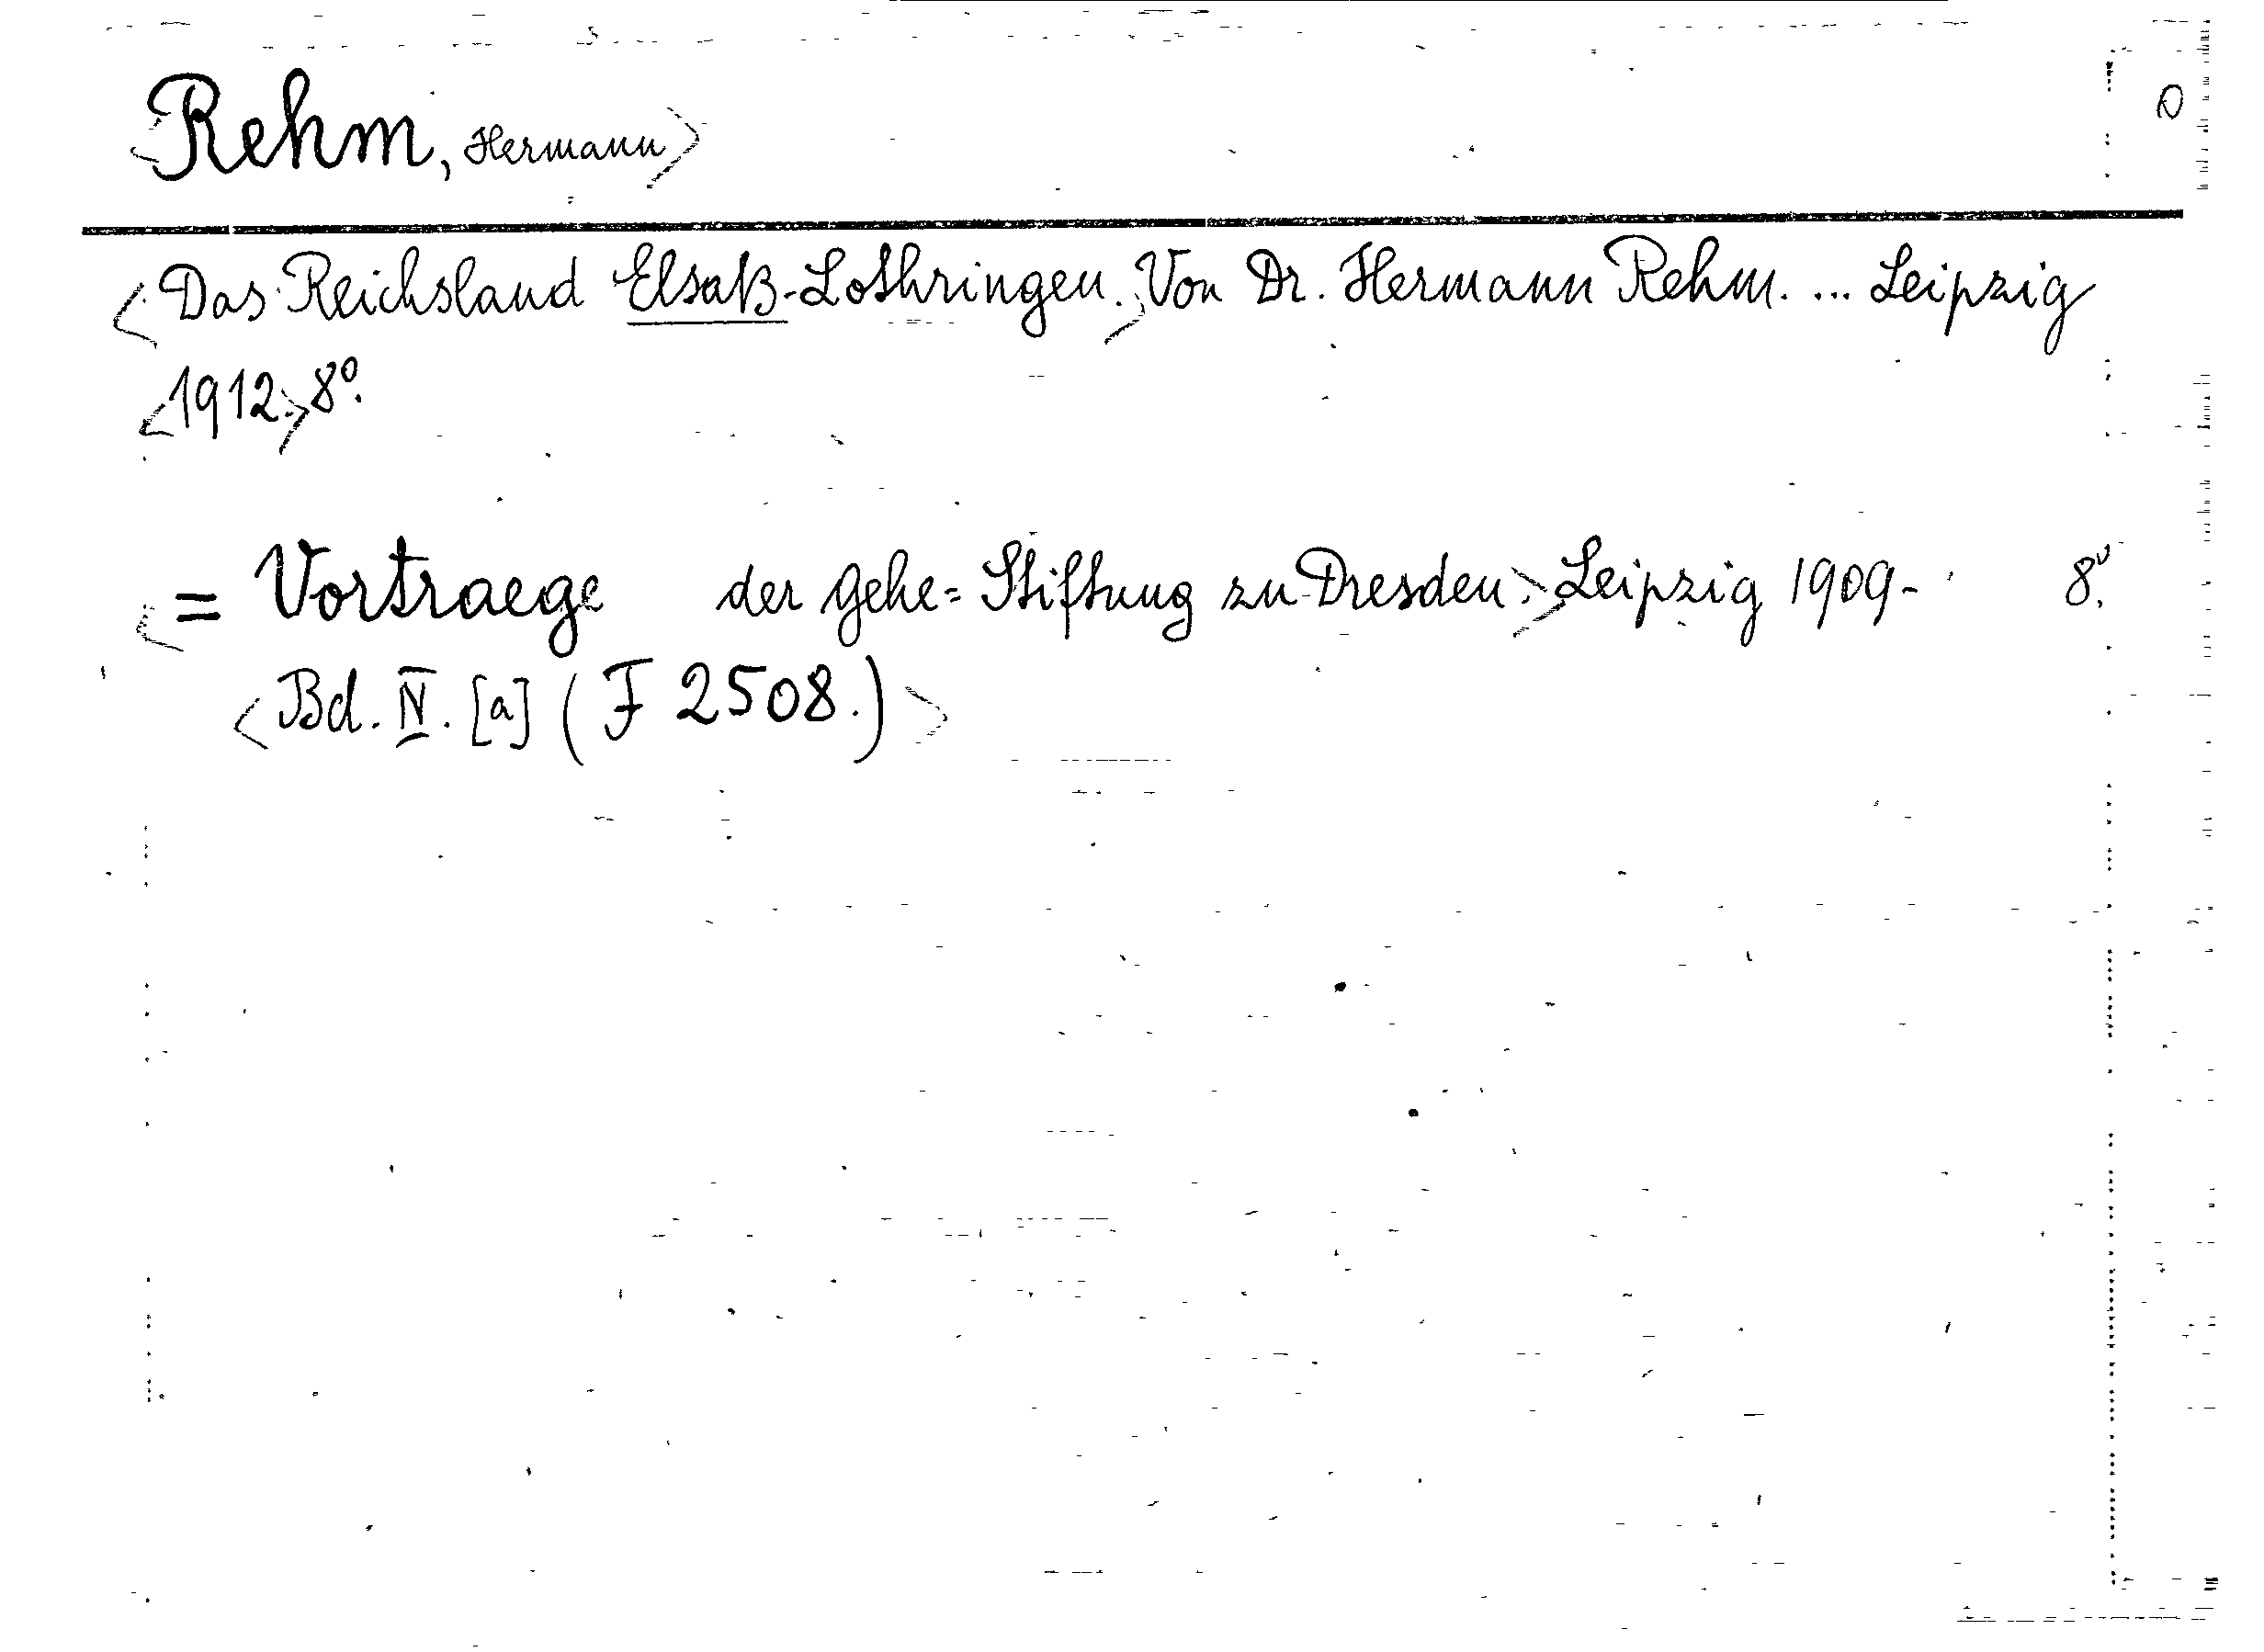 <Rehm, Hermann> 0
<Das Reichsland Elsaß-Lothringen.> Von Dr. Hermann Rehm. ... Leipzig
<1912.> 8°.
<= Vortraege der Gehe=Stiftung zu Dresden.> Leipzig 1909- 8°.
<Bd. IV. [a] (F 2508.)>